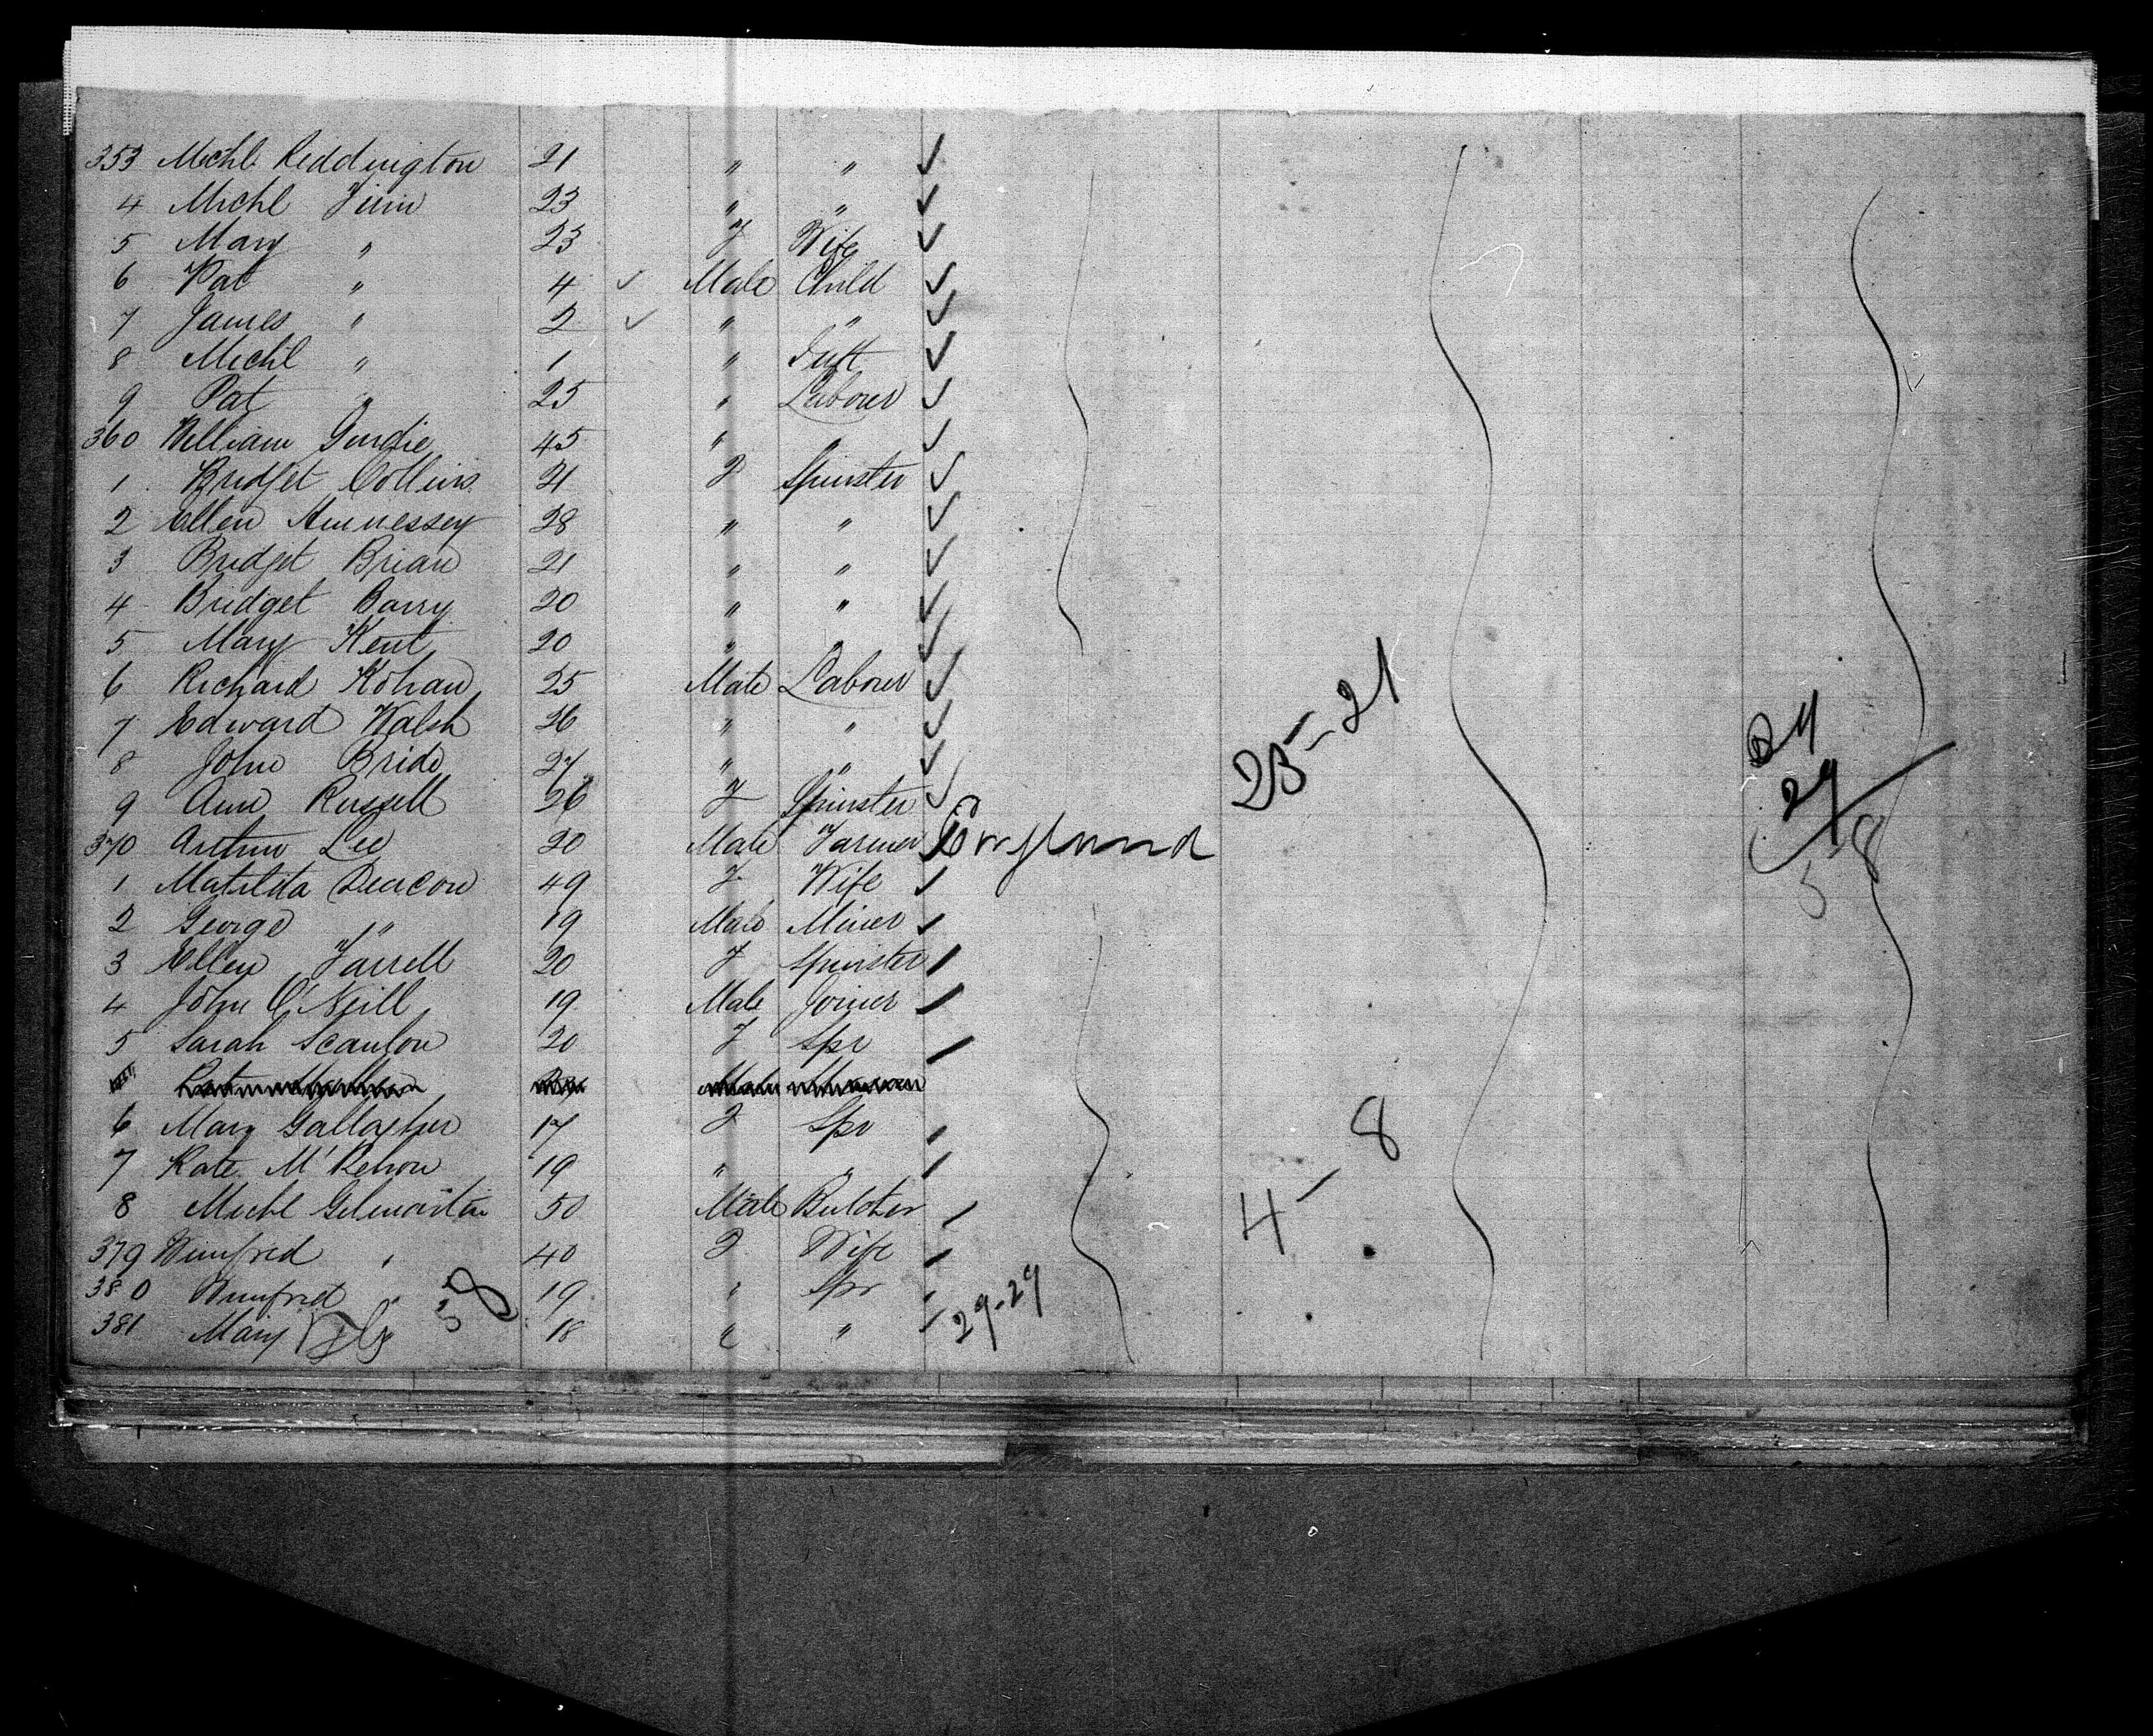 353 Michl Reddington 21 " " ✓
4 Michl Finn 23 " " ✓
5 Mary " 23 F Wife ✓
6 Pat " 4 ✓ Male Child ✓
7 James " 2 ✓ " " ✓
8 Michl " 1 " Inft ✓
9 Pat " 25 " Labourer ✓
360 William 45 " " ✓
1 Bridget Collins 21 F Spinster ✓
2 Ellen Hennessey 28 " " ✓
3 Bridget Brian 21 " " ✓
4 Bridget Barry 20 " " ✓
5 Mary Kent 20 " " ✓
6 Richard Kohan 25 Male Labourer ✓
7 Edward Walsh 26 " " ✓ 23-21
8 John Bride 27 " " ✓ 24
9 Ann Russell 26 F Spinster ✓ 29
370 Arthur Lee 20 Male Farmer England 58
1 Matilda Deacon 49 F Wife ✓
2 George " 19 Male Miner ✓
3 Ellen Farrell 20 F Spinster
4 John O'Neill 19 Male Joiner
5 Sarah Scanlon 20 F Spr
6 Mary Gallagher 17 F Spr
7 Kate 19 " "
8 Michl Gilmartin 50 Male Butcher 4-8
379 Winfred " 40 F Wife
380 Winfred " 19 " Spr
381 Mary 58 18 " " 29-29